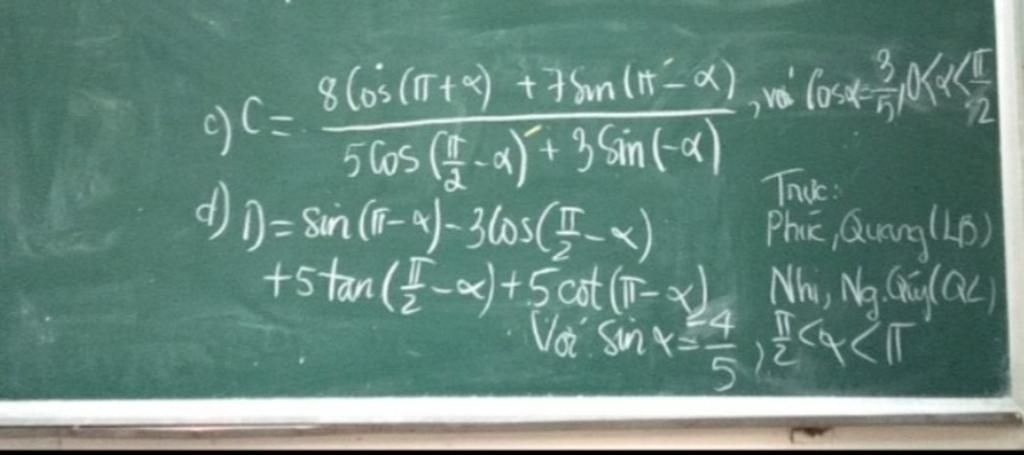 c) C = (8 Cos (π+α) + 7 Sin (π - α)) / (5 Cos (π/2 - α) + 3 Sin (-α)), với Cosα = 3/5, 0<α<π/2
d) D = Sin (π - α) - 3 Cos (π/2 - α)
+ 5 tan (π/2 - α) + 5 cot (π - α)
Với Sin α = -4/5, π/2 < α < π
Trực:
Phúc, Quang (LB)
Nhi, Ng. Qúy (QL)